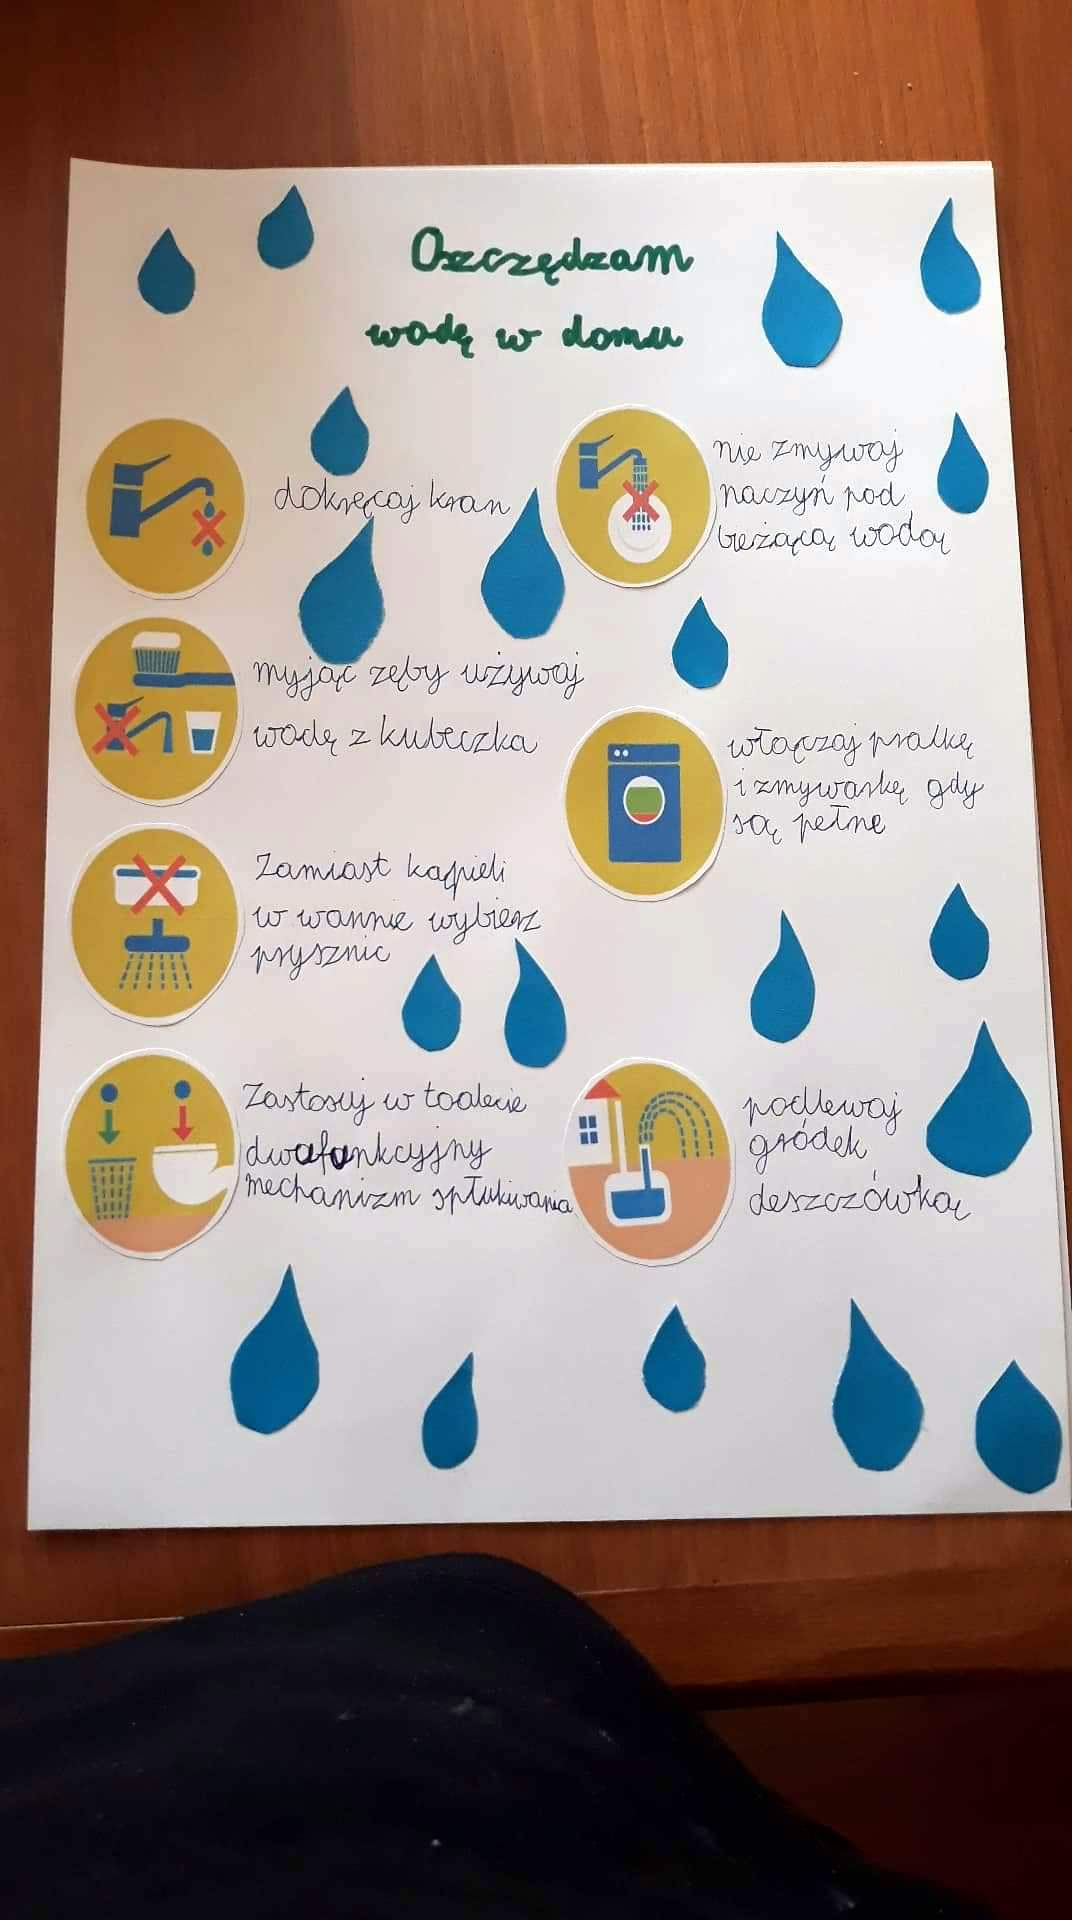 Oszczędzam
wodę w domu
dokręcaj kran
myjąc zęby używaj
wodę z kubeczka
Zamiast kąpieli
w wannie wybierz
prysznic
Zastosuj w toalecie
dwufunkcyjny
mechanizm spłukiwania
nie zmywaj
naczyń pod
bieżącą wodą
włączaj pralkę
i zmywarkę gdy
są pełne
podlewaj
gródek
deszczówką